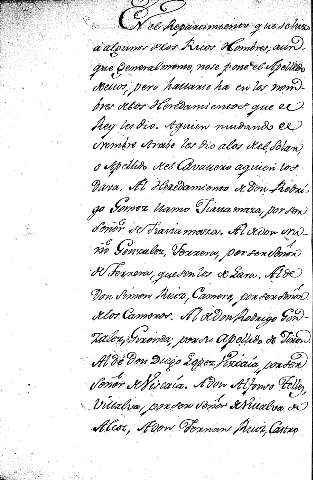 En el Repartimiento que se hizo
à algunos de los Ricos Hombres, aun-
que general mente, no se pone el Apellido
de ellos, pero hallarse ha en los nom-
bres de los Heredamientos que el
Rey les dio. Aquien mudando el
nombre Arabe les dio a los del Solar
o Apellido del Cavallero aquien los
dava. Al Heredamiento de Don Rodri-
go Gomez llamo Trastamara, por ser
Señor de Trastamara. Al de Don Nu-
ño Gonzalez, Ferrera, por ser Señor
de Ferrera, que son los de Lara. Al de
Don Simon Ruiz, Camero, por ser Señor
de los Cameros. Al de Don Rodrigo Gon-
zalez, Gironda, por su Apellido de Giron
Al de Don Diego Lopez, Vizcaia, por ser
Señor de Vizcaia. A Don Alfonso Tellez,
Villalva, por ser Señor de Villalva de
Alcor, A Don Fernan Ruiz, Castro